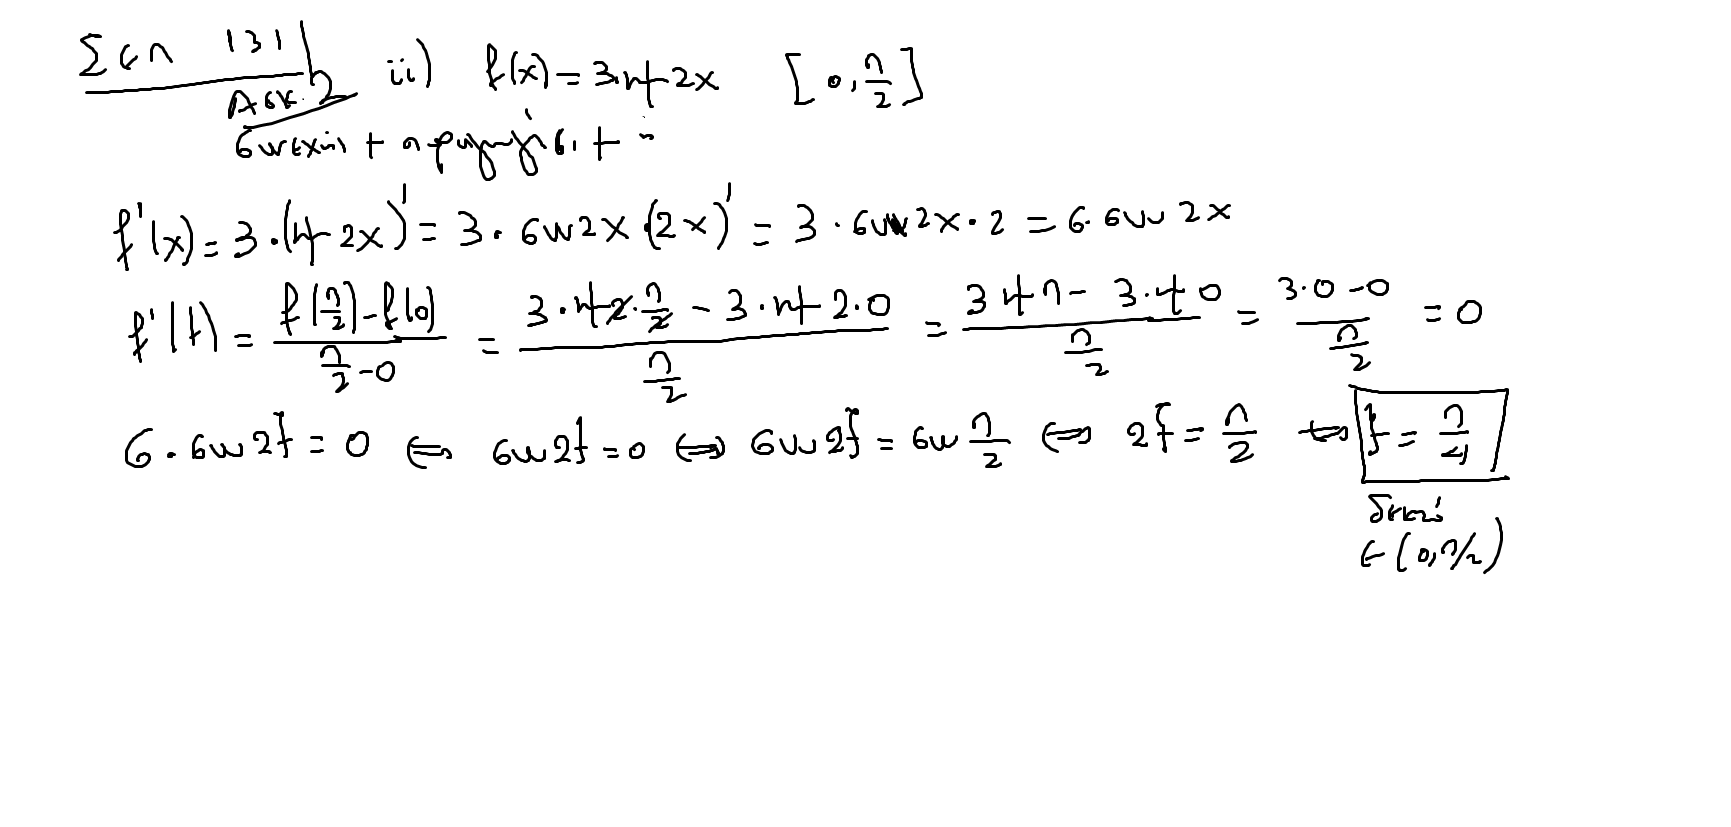 Σελ 131 ii) f(x) = 3ημ2x [0, π/2]
Ασκ. 2
συνεχής + παραγωγίσι. +
f'(x) = 3·(ημ2x)' = 3·συν2x·(2x)' = 3·συν2x·2 = 6·συν2x
f'(ξ) = (f(π/2) - f(0))/(π/2 - 0) = (3·ημ2·π/2 - 3·ημ2·0)/(π/2) = (3ημπ - 3·ημ0)/(π/2) = (3·0 - 0)/(π/2) = 0
6·συν2ξ = 0 ⇔ συν2ξ = 0 ⇔ συν2ξ = συν π/2 ⇔ 2ξ = π/2 ⇔ ξ = π/4
δεκτό
∈ (0, π/2)